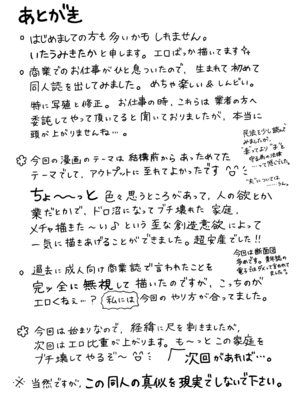 あとがき
○ はじめましての方も多いかも しれません。
いたうみきたかと申します。エロばっか描いてます
○ 商業でのお仕事がひと息ついたので、生まれて初めて
同人誌を出してみました。めちゃ楽しい&しんどい。
特に写植と修正。お仕事の時、これらは業者の方へ
委託してやって頂いてると聞いておりましたが、本当に
頭が上がりませんね…。
今回の漫画のテーマは結構前からあっためてた
テーマでして、アウトプットに至れてよかったです
民法を少し読んで
みましたが、
ちょ〜〜っと 色々思うところがあって、人の欲とか
業だとかで、ドロ沼になってブチ壊れた 家庭。
メチャ描きた〜い♪という歪な創造意欲によって
一気に描きあげることができました。超安産でした!!
今回は断面図
○ 過去に成人向け商業誌で言われたことを
完ッ全に無視して描いたのですが、こっちのが
エロくねぇ…? 私には 今回の やり方が合ってました。
今回は始まりなので、経緯に尺を割きましたが、
次回はエロ比重が上がります。も〜っとこの家庭を
ブチ壊してやるぞ〜
次回があれば…。
※ 当然ですが、この同人の真似を現実でしないで下さい。